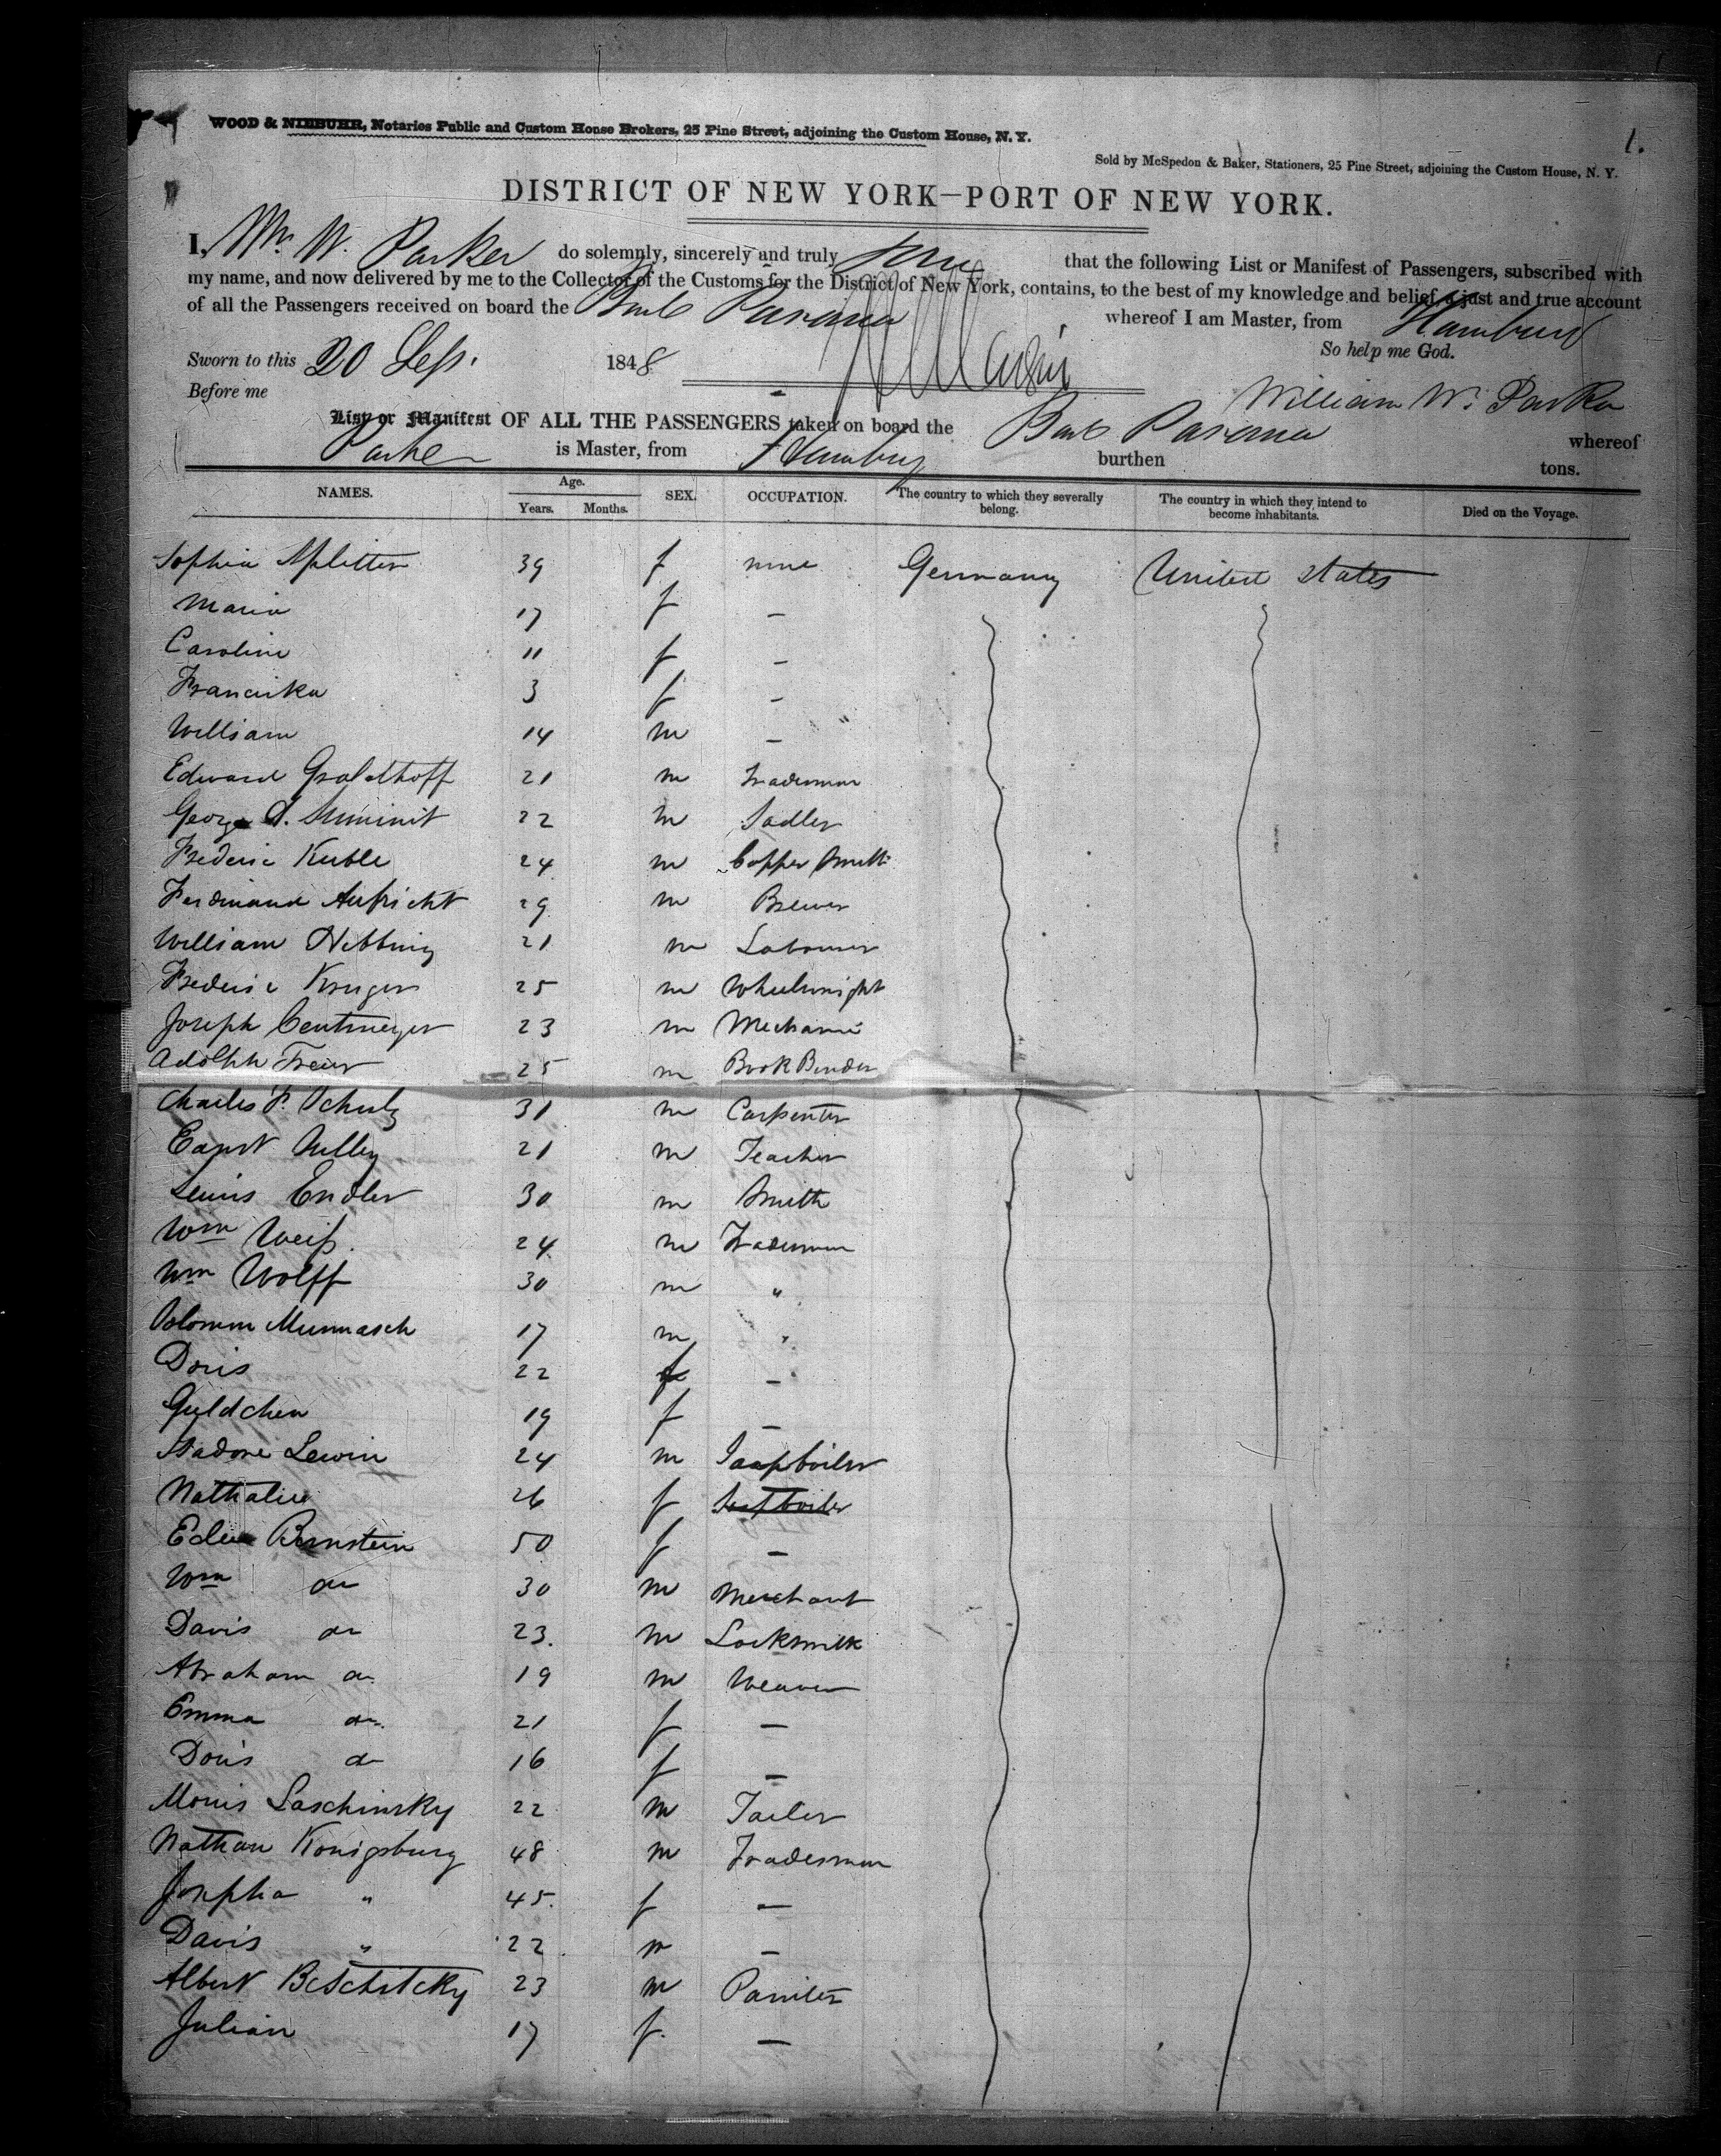 1.
WOOD & NIEBUHR, Notaries Public and Custom House Brokers, 25 Pine Street, adjoining the Custom House, N. Y.
Sold by McSpedon & Baker, Stationers, 25 Pine Street, adjoining the Custom House, N. Y.
DISTRICT OF NEW YORK—PORT OF NEW YORK.
I, Wm W. Parker do solemnly, sincerely and truly that the following List or Manifest of Passengers, subscribed with
my name, and now delivered by me to the Collector of the Customs for the District of New York, contains, to the best of my knowledge and belief, a just and true account
of all the Passengers received on board the Bark whereof I am Master, from Hamburg
Sworn to this 20 Sept. 1848 So help me God.
Before me William W. Parker
List or Manifest OF ALL THE PASSENGERS taken on board the Bark whereof
Parker is Master, from Hamburg burthen tons.
NAMES. Age. Years. Months. SEX. OCCUPATION. The country to which they severally belong. The country in which they intend to become inhabitants. Died on the Voyage.
Sophia Splitter 39 f none Germany United States
Maria 17 f —
Caroline 11 f —
Franciska 3 f —
William 14 m —
Edward 21 m Tradesman
George 22 m Sadler
Frederic Kuble 24 m Copper Smith
Ferdinand Aufricht 29 m Brewer
William Nibbing 21 m Labourer
Frederic Kruger 25 m Wheelwright
Joseph Centmeyer 23 m Mechanic
Adolph Freier 25 m Book Binder
Charles F. Schulz 31 m Carpenter
21 m Teacher
Lewis Endler 30 m Smith
Wm Weiß 24 m Tradesman
Wm Wolff 30 m "
Solomon Munnasch 17 m "
Doris 22 f —
Guldchen 19 f —
Isadore Lewin 24 m Soapboiler
Nathalie 26 f
Bernstein 50 f —
Wm do 30 m Merchant
Davis do 23. m Locksmith
Abraham do 19 m Weaver
Emma do 21 f —
Doris do 16 f —
Morris Laschinsky 22 m Tailer
Nathan Konigsburg 48 m Tradesman
Josepha " 45. f —
Davis " 22 m —
Albert 23 m Painter
Julian 17 f. —